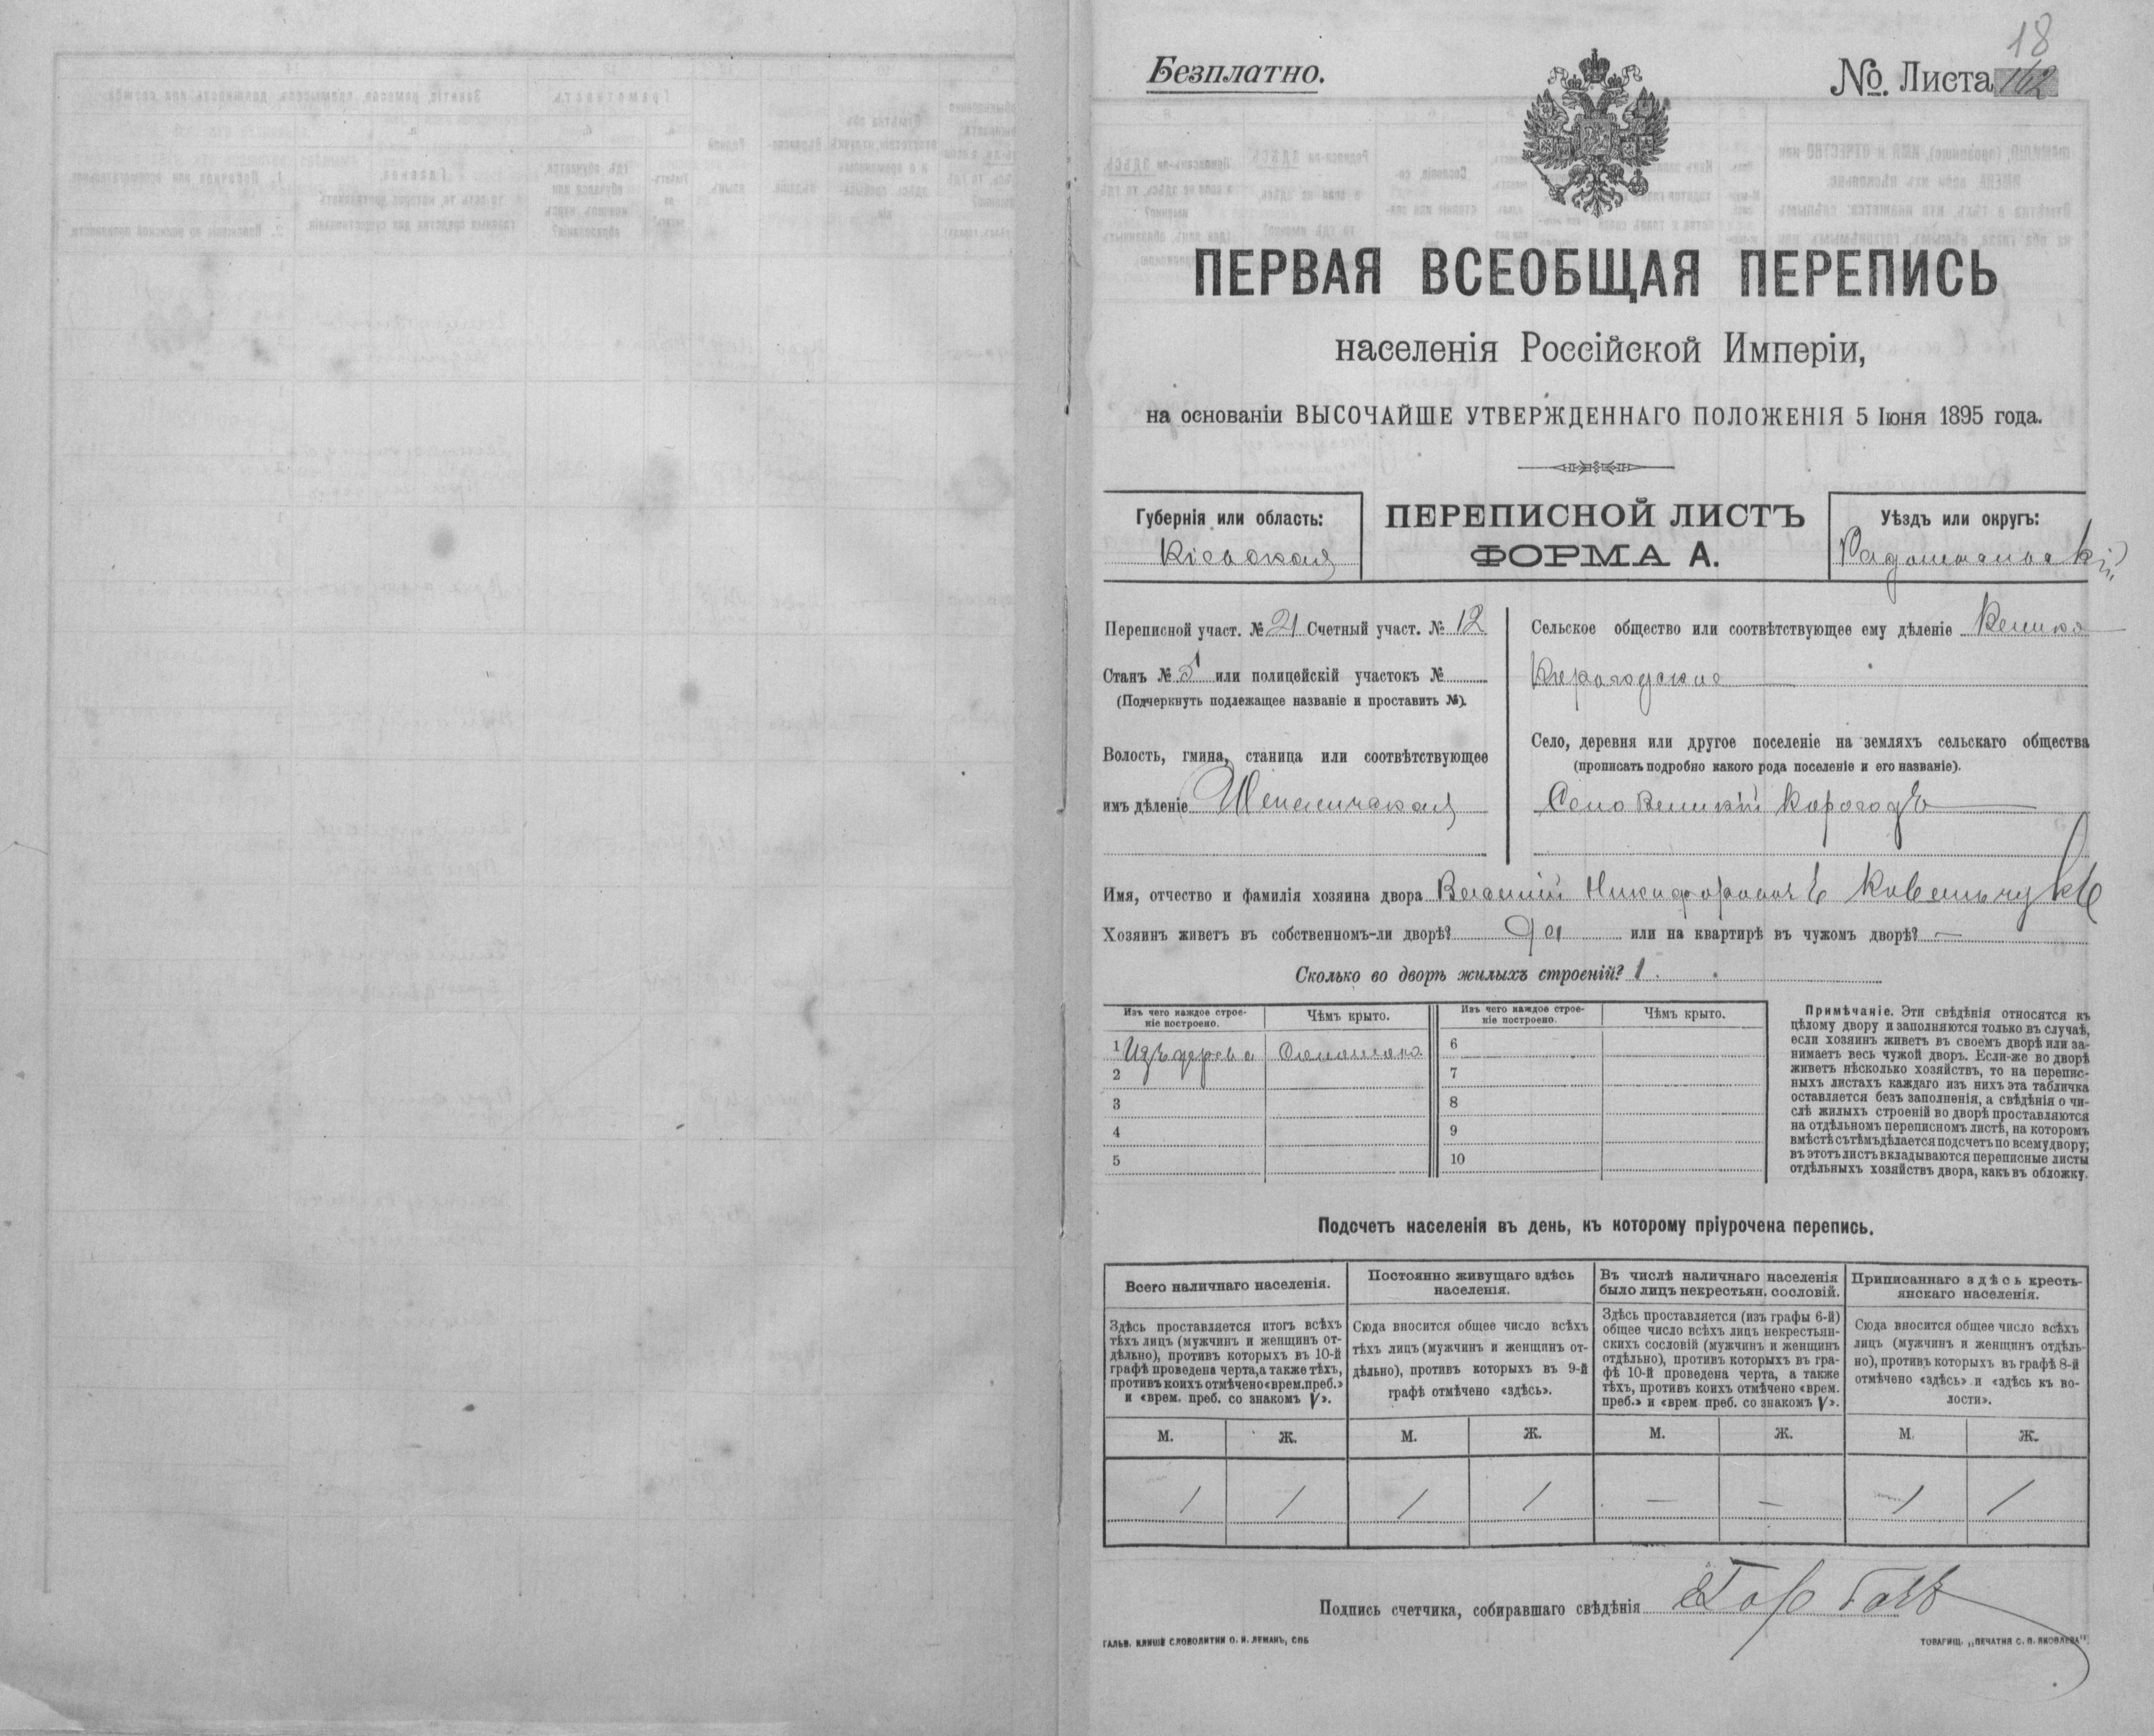 18
Безплатно.
№. Листа 162
ПЕРВАЯ ВСЕОБЩАЯ ПЕРЕПИСЬ
населенія Россійской Имперіи,
на основаніи ВЫСОЧАЙШЕ УТВЕРЖДЕННАГО ПОЛОЖЕНІЯ 5 Іюня 1895 года.
Губернія или область:
Кіевская
ПЕРЕПИСНОЙ ЛИСТЪ
ФОРМА А.
Уѣздъ или округъ:
Радомысльскій
Переписной участ. № 21 Счетный участ. № 12
Станъ № 5 или полицейскій участокъ №
(Подчеркнуть подлежащее названіе и проставить №).
Волость, гмина, станица или соотвѣтствующее
имъ дѣленіе Шепеличская
Сельское общество или соотвѣтствующее ему дѣленіе Велико
Корогодское
Село, деревня или другое поселеніе на земляхъ сельскаго общества
(прописать подробно какого рода поселеніе и его названіе).
Село Великій Корогодъ
Имя, отчество и фамилія хозяина двора Василій Никифоровичъ Ковальчукъ
Хозяинъ живетъ въ собственномъ-ли дворѣ? Да или на квартирѣ въ чужомъ дворѣ? —
Сколько во дворѣ жилыхъ строеній? 1.
Изъ чего каждое строе-
ніе построено.
Чѣмъ крыто.
Изъ чего каждое строе-
ніе построено.
Чѣмъ крыто.
1 Изъ дерева Соломою 6
2 7
3 8
4 9
5 10
Примѣчаніе. Эти свѣдѣнія относятся къ
цѣлому двору и заполняются только въ случаѣ,
если хозяинъ живетъ въ своемъ дворѣ или за-
нимаетъ весь чужой дворъ. Если-же во дворѣ
живетъ нѣсколько хозяйствъ, то на перепис-
ныхъ листахъ каждаго изъ нихъ эта табличка
оставляется безъ заполненія, а свѣдѣнія о чи-
слѣ жилыхъ строеній во дворѣ проставляются
на отдѣльномъ переписномъ листѣ, на которомъ
вмѣстѣ съ тѣмъ дѣлается подсчетъ по всему двору;
въ этотъ листъ вкладываются переписные листы
отдѣльныхъ хозяйствъ двора, какъ въ обложку.
Подсчетъ населенія въ день, къ которому пріурочена перепись.
Всего наличнаго населенія.
Здѣсь проставляется итогъ всѣхъ
тѣхъ лицъ (мужчинъ и женщинъ от-
дѣльно), противъ которыхъ въ 10-й
графѣ проведена черта, а также тѣхъ,
противъ коихъ отмѣчено «врем. преб.»
и «врем. преб. со знакомъ V».
Постоянно живущаго здѣсь
населенія.
Сюда вносится общее число всѣхъ
тѣхъ лицъ (мужчинъ и женщинъ от-
дѣльно), противъ которыхъ въ 9-й
графѣ отмѣчено «здѣсь».
Въ числѣ наличнаго населенія
было лицъ некрестьян. сословій.
Здѣсь проставляется (изъ графы 6-й)
общее число всѣхъ лицъ некрестьян-
скихъ сословій (мужчинъ и женщинъ
отдѣльно), противъ которыхъ въ гра-
фѣ 10-й проведена черта, а также
тѣхъ, противъ коихъ отмѣчено «врем.
преб.» и «врем преб. со знакомъ V».
Приписаннаго здѣсь кресть-
янскаго населенія.
Сюда вносится общее число всѣхъ
лицъ (мужчинъ и женщинъ отдѣль-
но), противъ которыхъ въ графѣ 8-й
отмѣчено «здѣсь» и «здѣсь къ во-
лости».
М. Ж. М. Ж. М. Ж. М. Ж.
1 1 1 1 — — 1 1
Подпись счетчика, собиравшаго свѣдѣнія
ГАЛЬВ. КЛИШЕ СЛОВОЛИТНИ О. И. ЛЕМАНЪ, СПБ
ТОВАРИЩ. „ПЕЧАТНЯ С. П. ЯКОВЛЕВА".